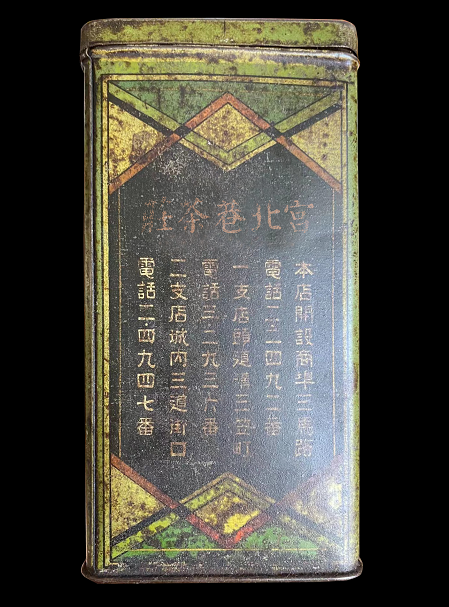 宮北巷茶社
本店開設商埠三馬路
電話二·二四九二番
一支店頭道溝三笠町
電話三·二九三六番
二支店城內三道街口
電話二·四九四七番